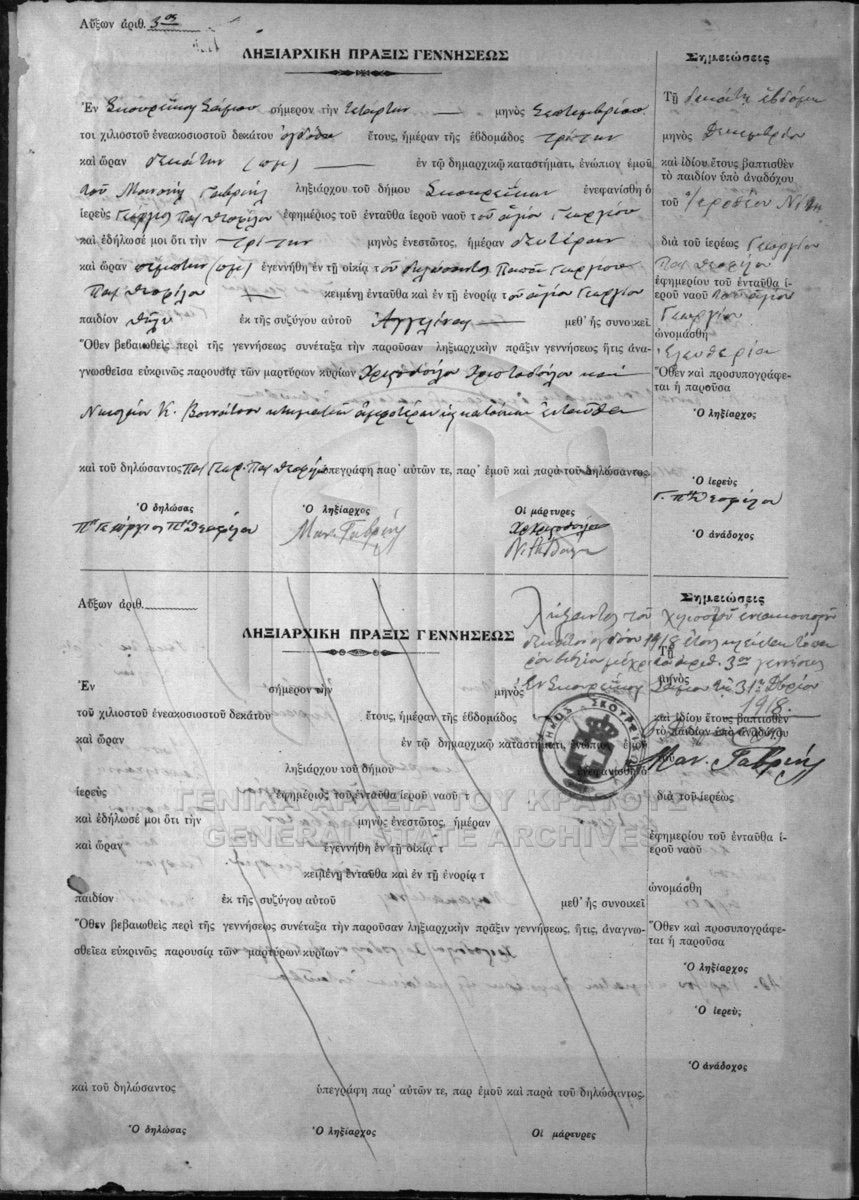 Αὔξων ἀριθ. 3ος
ΛΗΞΙΑΡΧΙΚΗ ΠΡΑΞΙΣ ΓΕΝΝΗΣΕΩΣ
Ἐν Σκουρέϊκοις Σάμου σήμερον τὴν τετάρτην μηνὸς Σεπτεμβρίου
τοι χιλιοστοῦ ἐνεακοσιοστοῦ δεκάτου ὀγδόου ἔτους, ἡμέραν τῆς ἑβδομάδος τρίτην
καὶ ὥραν δεκάτην (πμ) ἐν τῷ δημαρχικῷ καταστήματι, ἐνώπιον ἐμοῦ
τοῦ Μανουὴλ Γαβριὴλ ληξιάρχου τοῦ δήμου Σκουρεΐκων ἐνεφανίσθη ὁ
ἱερεὺς Γεώργιος Παπ Θεοφίλου ἐφημέριος τοῦ ἐνταῦθα ἱεροῦ ναοῦ τοῦ ἁγίου Γεωργίου
καὶ ἐδήλωσέ μοι ὅτι τὴν τρίτην μηνὸς ἐνεστῶτος, ἡμέραν δευτέραν
καὶ ὥραν πέμπτην (πμ) ἐγεννήθη ἐν τῇ οἰκίᾳ τοῦ δηλώσαντος Παπᾶ Γεωργίου
Παπ Θεοφίλου κειμένῃ ἐνταῦθα καὶ ἐν τῇ ἐνορίᾳ τοῦ ἁγίου Γεωργίου
παιδίον θῆλυ ἐκ τῆς συζύγου αὐτοῦ Ἀγγελίνας μεθ' ἧς συνοικεῖ
Ὅθεν βεβαιωθεὶς περὶ τῆς γεννήσεως συνέταξα τὴν παροῦσαν ληξιαρχικὴν πρᾶξιν γεννήσεως ἥτις ἀνα-
γνωσθεῖσα εὐκρινῶς παρουσίᾳ τῶν μαρτύρων κυρίων Χριστοδούλου καὶ
Νικολάου Κ. κτηματιῶν ἀμφοτέρων κατοίκων ἐνταῦθα
καὶ τοῦ δηλώσαντος Παπ Γεωρ. Παπ Θεοφίλου ὑπεγράφη παρ' αὐτῶν τε, παρ' ἐμοῦ καὶ παρὰ τοῦ δηλώσαντος.
Ὁ δηλώσας Ὁ ληξίαρχος Οἱ μάρτυρες
Γεώργιος Θεοφίλου Μαν. Γαβριὴλ
Σημειώσεις
Τῇ δεκάτῃ ἑβδόμῃ
μηνὸς Δεκεμβρίου
καὶ ἰδίου ἔτους βαπτισθὲν
τὸ παιδίον ὑπὸ ἀναδόχου
τοῦ Ἱεροθέου
διὰ τοῦ ἱερέως Γεωργίου
Παπ Θεοφίλου
ἐφημερίου τοῦ ἐνταῦθα ἱ-
εροῦ ναοῦ τοῦ ἁγίου
Γεωργίου
ὠνομάσθη
Ἐλευθερία
Ὅθεν καὶ προσυπογράφε-
ται ἡ παροῦσα
Ὁ ληξίαρχος
Ὁ ἱερεὺς
Γ. Θεοφίλου
Ὁ ἀνάδοχος
Αὔξων ἀριθ.
ΛΗΞΙΑΡΧΙΚΗ ΠΡΑΞΙΣ ΓΕΝΝΗΣΕΩΣ
Ἐν σήμερον τὴν μηνὸς
τοῦ χιλιοστοῦ ἐνεακοσιοστοῦ δεκάτου ἔτους, ἡμέραν τῆς ἑβδομάδος
καὶ ὥραν ἐν τῷ δημαρχικῷ καταστήματι, ἐνώπιον ἐμοῦ
ληξιάρχου τοῦ δήμου ἐνεφανίσθη ὁ
ἱερεὺς ἐφημέριος τοῦ ἐνταῦθα ἱεροῦ ναοῦ τ
καὶ ἐδήλωσέ μοι ὅτι τὴν μηνὸς ἐνεστῶτος, ἡμέραν
καὶ ὥραν ἐγεννήθη ἐν τῇ οἰκίᾳ τ
κειμένῃ ἐνταῦθα καὶ ἐν τῇ ἐνορίᾳ τ
παιδίον ἐκ τῆς συζύγου αὐτοῦ μεθ' ἧς συνοικεῖ
Ὅθεν βεβαιωθεὶς περὶ τῆς γεννήσεως συνέταξα τὴν παροῦσαν ληξιαρχικὴν πρᾶξιν γεννήσεως, ἥτις, ἀναγνω-
σθεῖσα εὐκρινῶς παρουσίᾳ τῶν μαρτύρων κυρίων
καὶ τοῦ δηλώσαντος ὑπεγράφη παρ' αὐτῶν τε, παρ ἐμοῦ καὶ παρὰ τοῦ δηλώσαντος.
Ὁ δηλώσας Ὁ ληξίαρχος Οἱ μάρτυρες
Σημειώσεις
Λήξαντος τοῦ χιλιοστοῦ ἐνεακοσιοστοῦ
δεκάτου ὀγδόου 1918 ἔτους κλείεται τὸ πα-
ρὸν βιβλίον μέχρι ἀριθ. 3ου γεννήσεως
Ἐν Σκουρεΐκοις Σάμου τῇ 31ῃ Δβρίου
1918.
Μαν. Γαβριὴλ
Τῇ
μηνὸς
καὶ ἰδίου ἔτους βαπτισθὲν
τὸ παιδίον ὑπὸ ἀναδόχου
τοῦ
διὰ τοῦ ἱερέως
ἐφημερίου τοῦ ἐνταῦθα ἱ-
εροῦ ναοῦ
ὠνομάσθη
Ὅθεν καὶ προσυπογράφε-
ται ἡ παροῦσα
Ὁ ληξίαρχος
Ὁ ἱερεὺς
Ὁ ἀνάδοχος
ΔΗΜΟΣ ΣΚΟΥΡΕΪΚΩΝ
ΓΕΝΙΚΑ ΑΡΧΕΙΑ ΤΟΥ ΚΡΑΤΟΥΣ
GENERAL STATE ARCHIVES